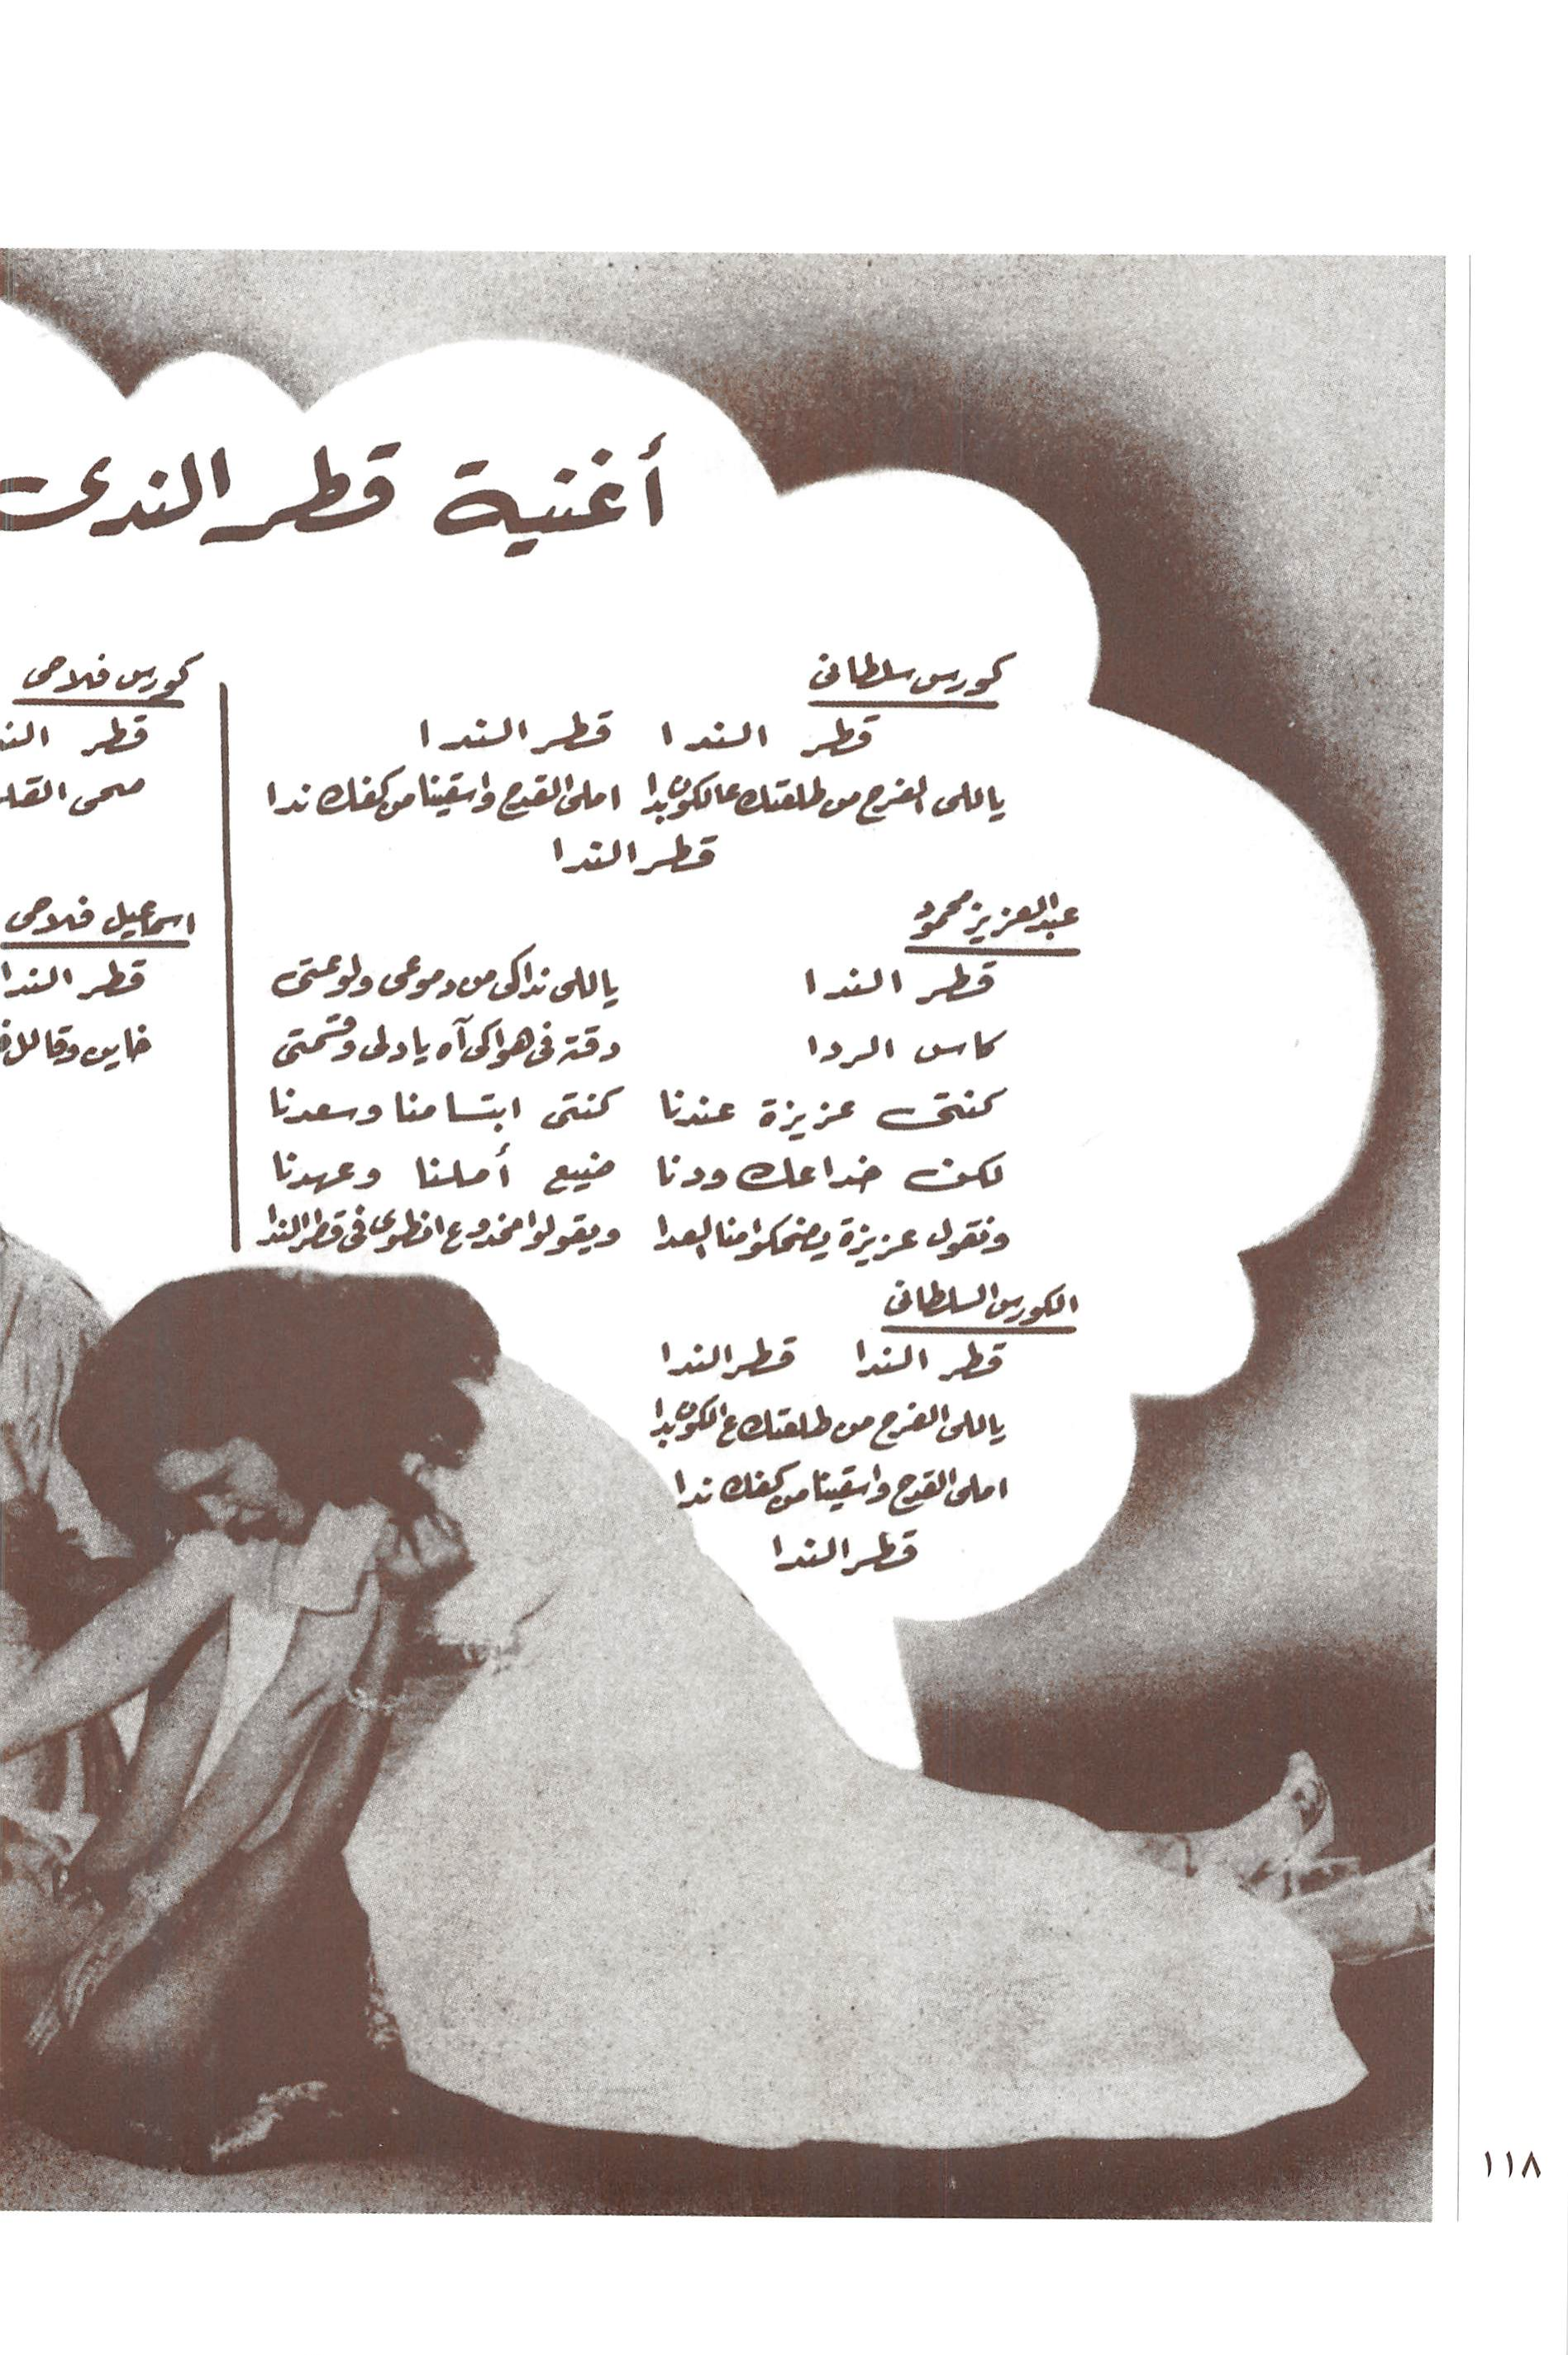 أغنية قطر الندى
كورس سلطانى
قطر الندا قطر الندا
ياللى الفرح من طلعتك عالكون بدا املى القدح واسقينا من كفك ندا
قطر الندا
عبدالعزيز محمود
قطر الندا ياللى نداكى من دموعى ولوعتى
كاس الردا دقته فى هواكى آه يا دلى وقسمتى
كنتى عزيزة عندنا كنتى ابتسامنا وسعدنا
لكن خداعك ودنا ضيع أملنا وعهدنا
ونقول عزيزة يضحكوا منا العدا ويقولوا مخدوع انطوى فى قطر الندا
الكورس السلطانى
قطر الندا قطر الندا
ياللى الفرح من طلعتك ع الكون بدا
املى القدح واسقينا من كفك ندا
قطر الندا
كورس فلاحى
قطر
صحى
اسماعيل فلاحى
قطر الندا
خاين
١١٨